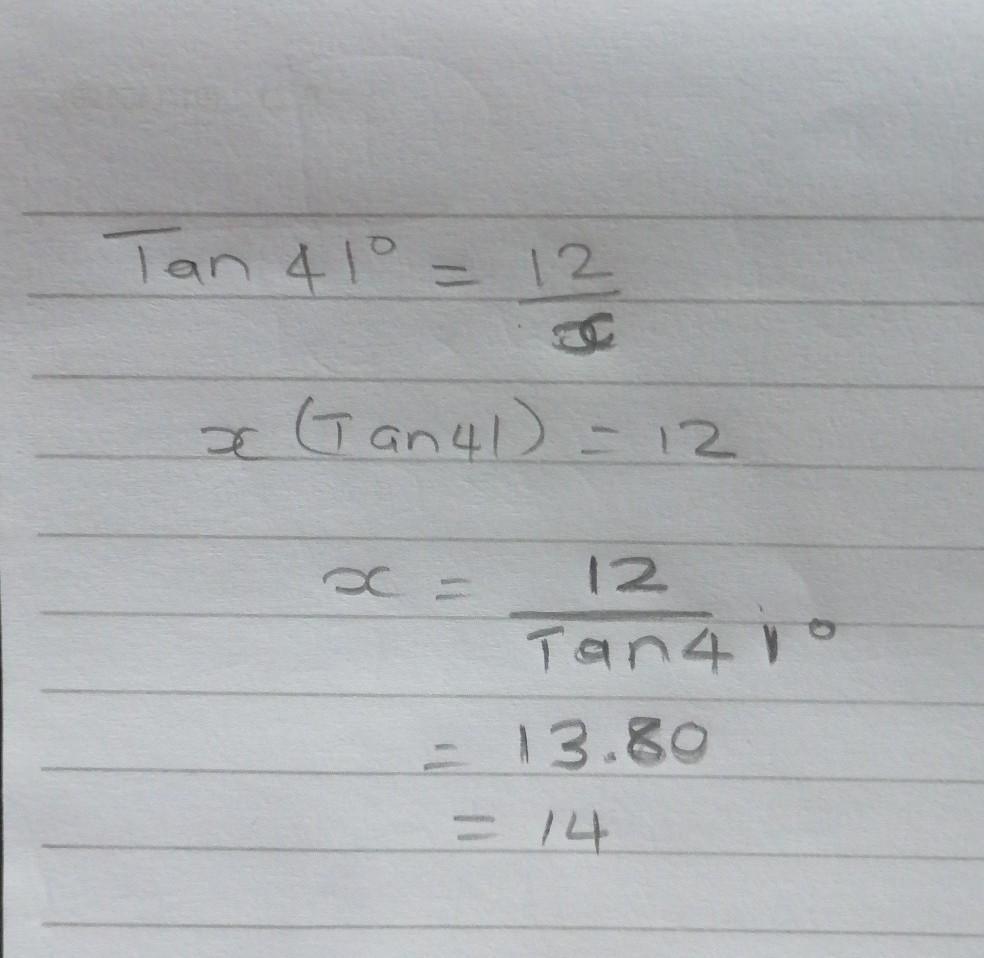 Tan 41° = 12/x
x (Tan 41) = 12
x = 12/Tan 41°
= 13.80
= 14